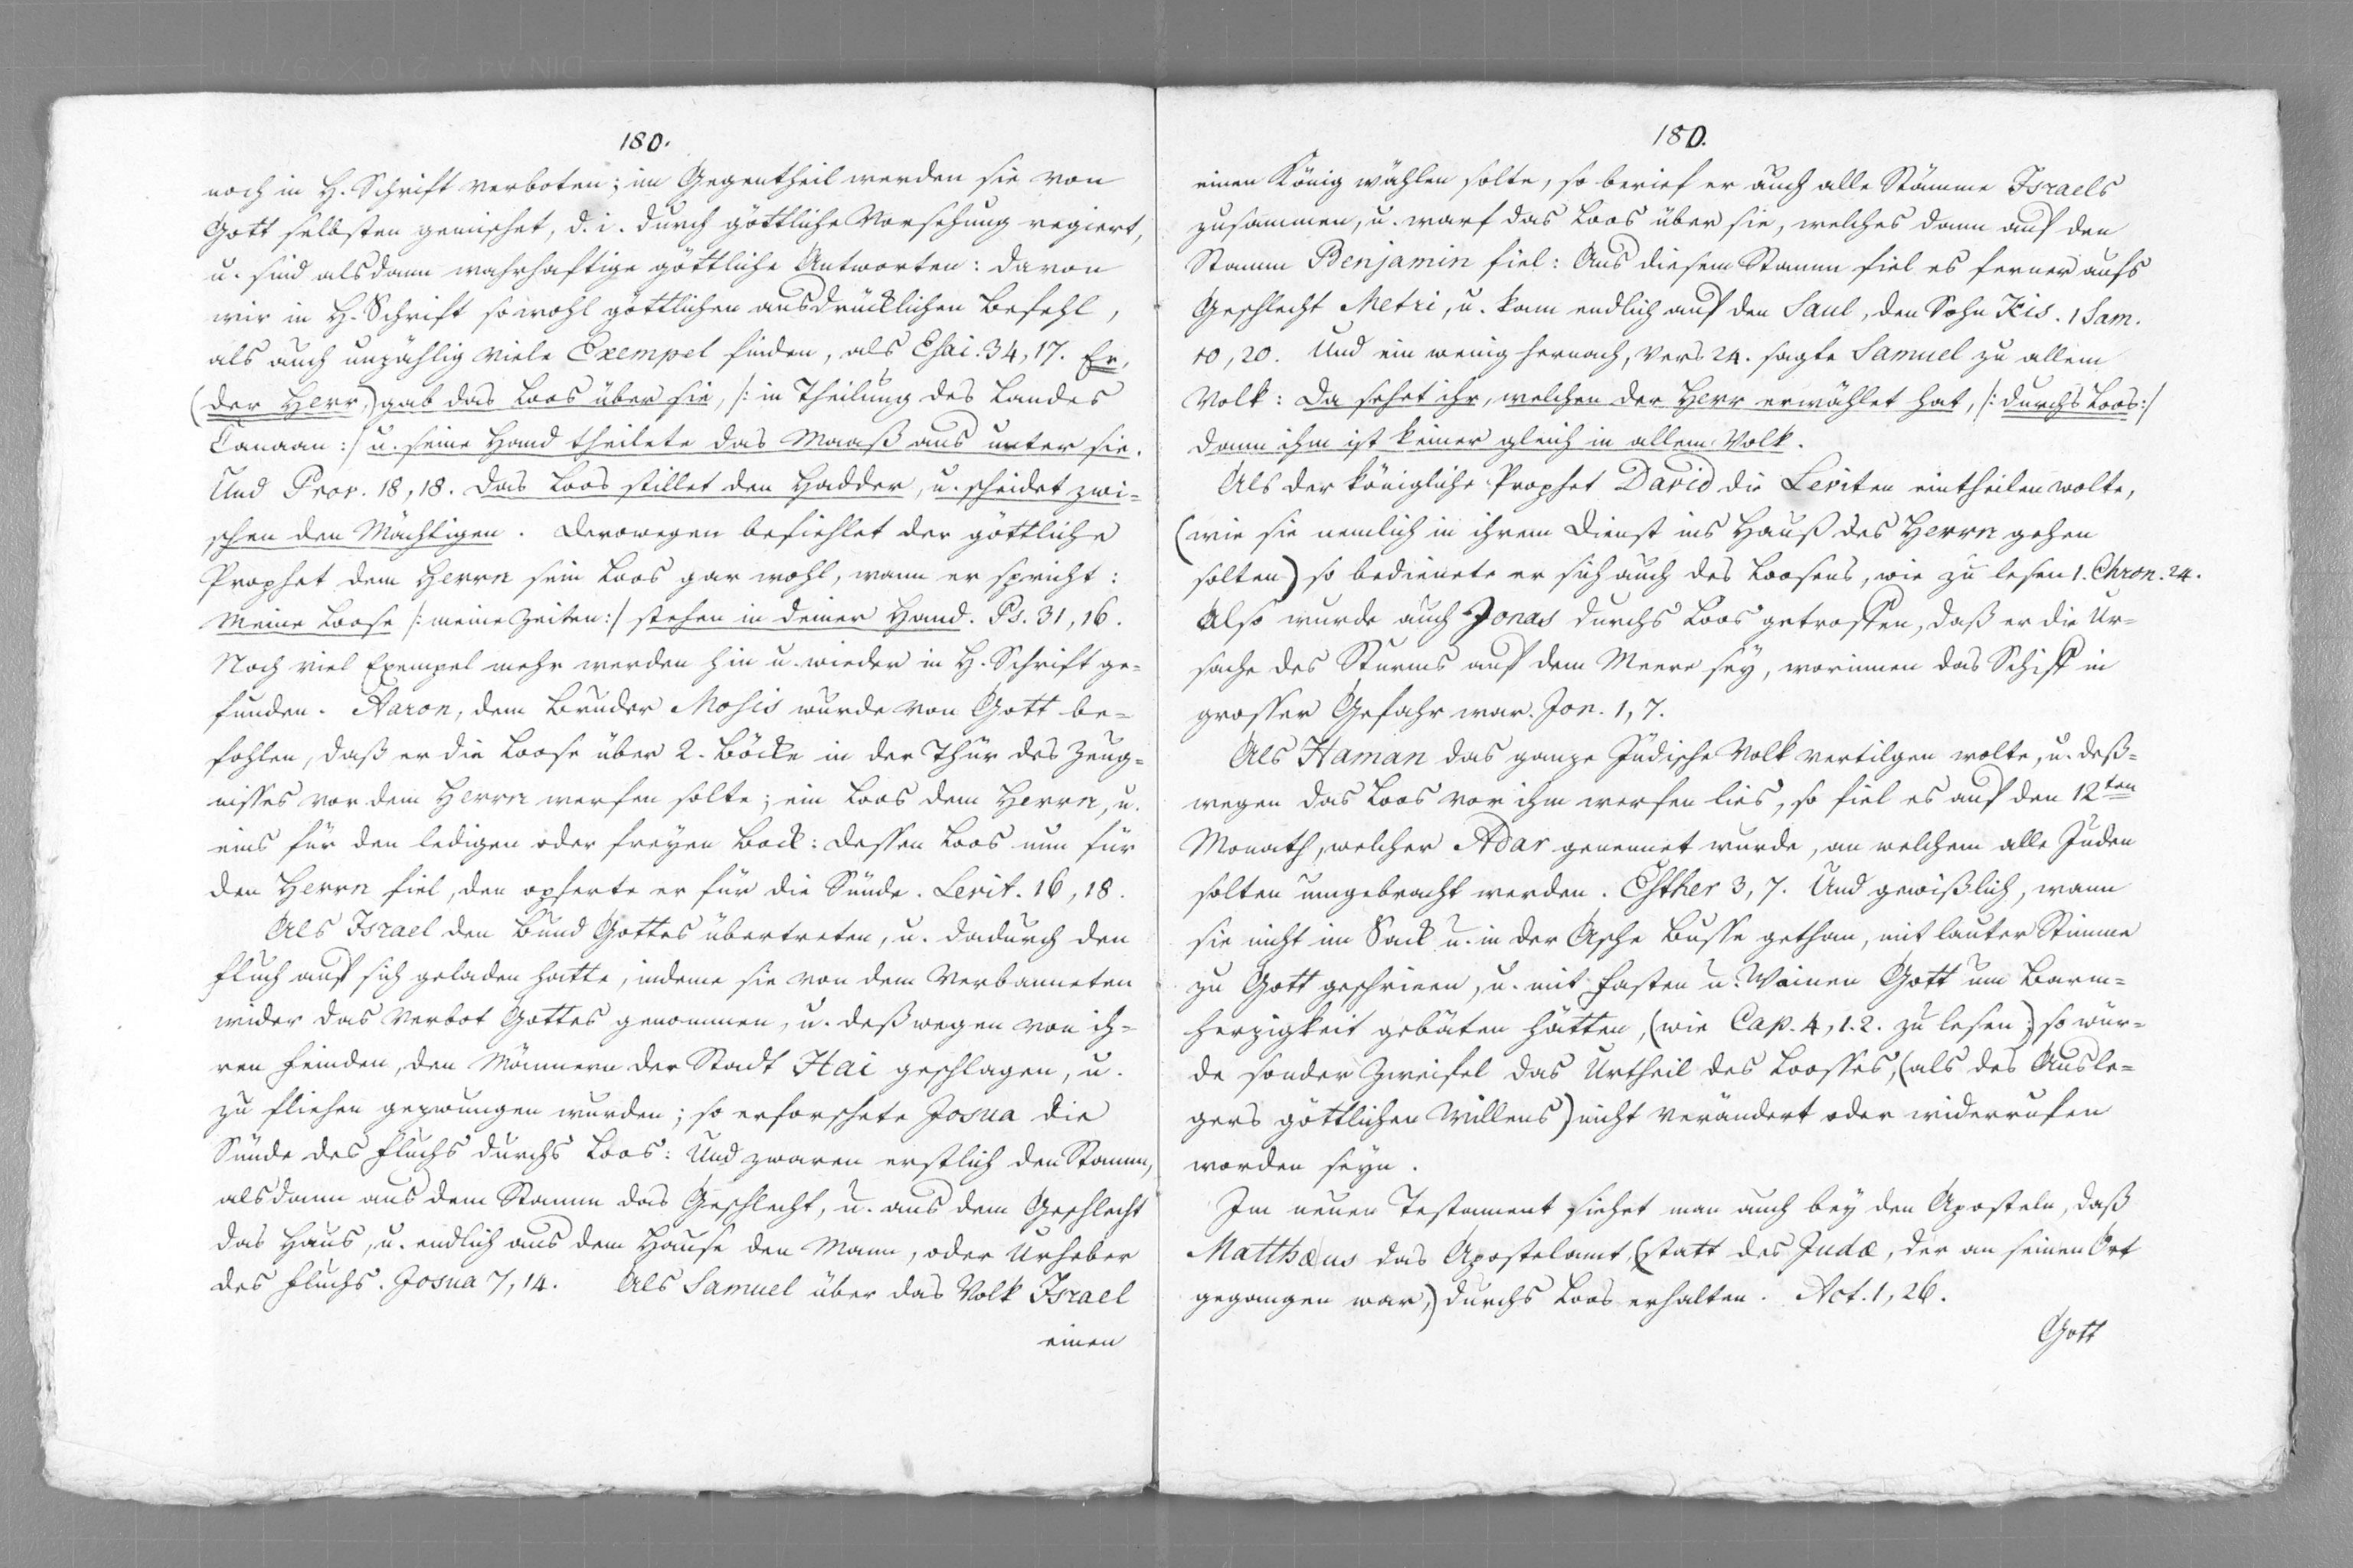 180.
noch in H. Schrift verboten; im Gegentheil werden sie von
Gott selbsten gemischet, d. i. durch göttliche Vorsehung regiert,
u. sind alsdann wahrhaftige göttliche Antworten: davon
wir in H. Schrift sowohl göttlichen ausdrücklichen Befehl,
als auch unzählig viele Exempel finden, als Esai. 34, 17. Er,
(der Herr,) gab das Loos über sie, /: in Theilung des Landes
Canaan :/ u. seine Hand theilete das Maaß aus unter sie.
Und Prov. 18, 18. Das Loos stillet den Hadder, u. scheidet zwi-
schen den Mächtigen. Derowegen befiehlet der göttliche
Prophet dem Herrn sein Loos gar wohl, wann er spricht:
Meine Loose /: meine Zeiten :/ stehen in deiner Hand. Ps. 31, 16.
Noch viel Exempel mehr werden hin u. wieder in H. Schrift ge-
funden. Aaron, dem Bruder Mosis wurde von Gott be-
fohlen, daß er die Loose über 2. Böcke in der Thür des Zeug-
nisses vor dem Herrn werfen solte; ein Loos dem Herrn, u.
eins für den ledigen oder freyen Bock: dessen Loos nun für
den Herrn fiel, den opferte er für die Sünde. Levit. 16, 18.
Als Israel den Bund Gottes übertreten, u. dadurch den
Fluch auf sich geladen hatte, indeme sie von dem Verbanneten
wider das Verbot Gottes genommen, u. deßwegen von ih-
ren Feinden, den Männern der Stadt Hai geschlagen, u.
zu fliehen gezwungen wurden; so erforschete Josua die
Sünde des Fluchs durchs Loos: Und zwaren erstlich den Stamm,
alsdann aus dem Stamm das Geschlecht, u. aus dem Geschlecht
das Haus, u. endlich aus dem Hause den Mann, oder Urheber
des Fluchs. Josua 7, 14. Als Samuel über das Volk Israel
einen
180.
einen König wählen solte, so berief er auch alle Stämme Israels
zusammen, u. warf das Loos über sie, welches dann auf den
Stamm Benjamin fiel: Aus diesem Stamm fiel es ferner aufs
Geschlecht Metri, u. kam endlich auf den Saul, den Sohn Kis. 1 Sam.
10, 20. Und ein wenig hernach, Vers 24. sagte Samuel zu allem
Volk: Da sehet ihr, welchen der Herr erwählet hat, /: durchs Loos :/
dann ihm ist keiner gleich in allem Volk.
Als der königliche Prophet David die Leviten eintheilen wolte,
(wie sie nemlich in ihrem Dienst ins Hauß des Herrn gehen
solten) so bedienete er sich auch des Loosens, wie zu lesen 1. Chron. 24.
Also wurde auch Jonas durchs Loos getroffen, daß er die Ur-
sache des Sturms auf dem Meere sey, worinnen das Schiff in
grosser Gefahr war. Jon. 1, 7.
Als Haman das ganze Jüdische Volk vertilgen wolte, u. deß-
wegen das Loos vor ihm werfen lies, so fiel es auf den 12ten
Monath, welcher Adar genennet wurde, an welchem alle Juden
solten umgebracht werden. Esther 3, 7. Und gewißlich, wann
sie nicht im Sack u. in der Asche Busse gethan, mit lauter Stimme
zu Gott geschrieen, u. mit Fasten u. Weinen Gott um Barm-
herzigkeit gebäten hätten, (wie Cap. 4, 1. 2. zu lesen;) so wür-
de sonder Zweifel das Urtheil des Loosses, (als des Ausle-
gers göttlichen Willens) nicht verändert oder widerrufen
worden seyn.
Im neuen Testament siehet man auch bey den Aposteln, daß
Matthæus das Apostelamt, (statt des Judæ, der an seinen Ort
gegangen war,) durchs Loos erhalten. Act. 1, 26.
Gott